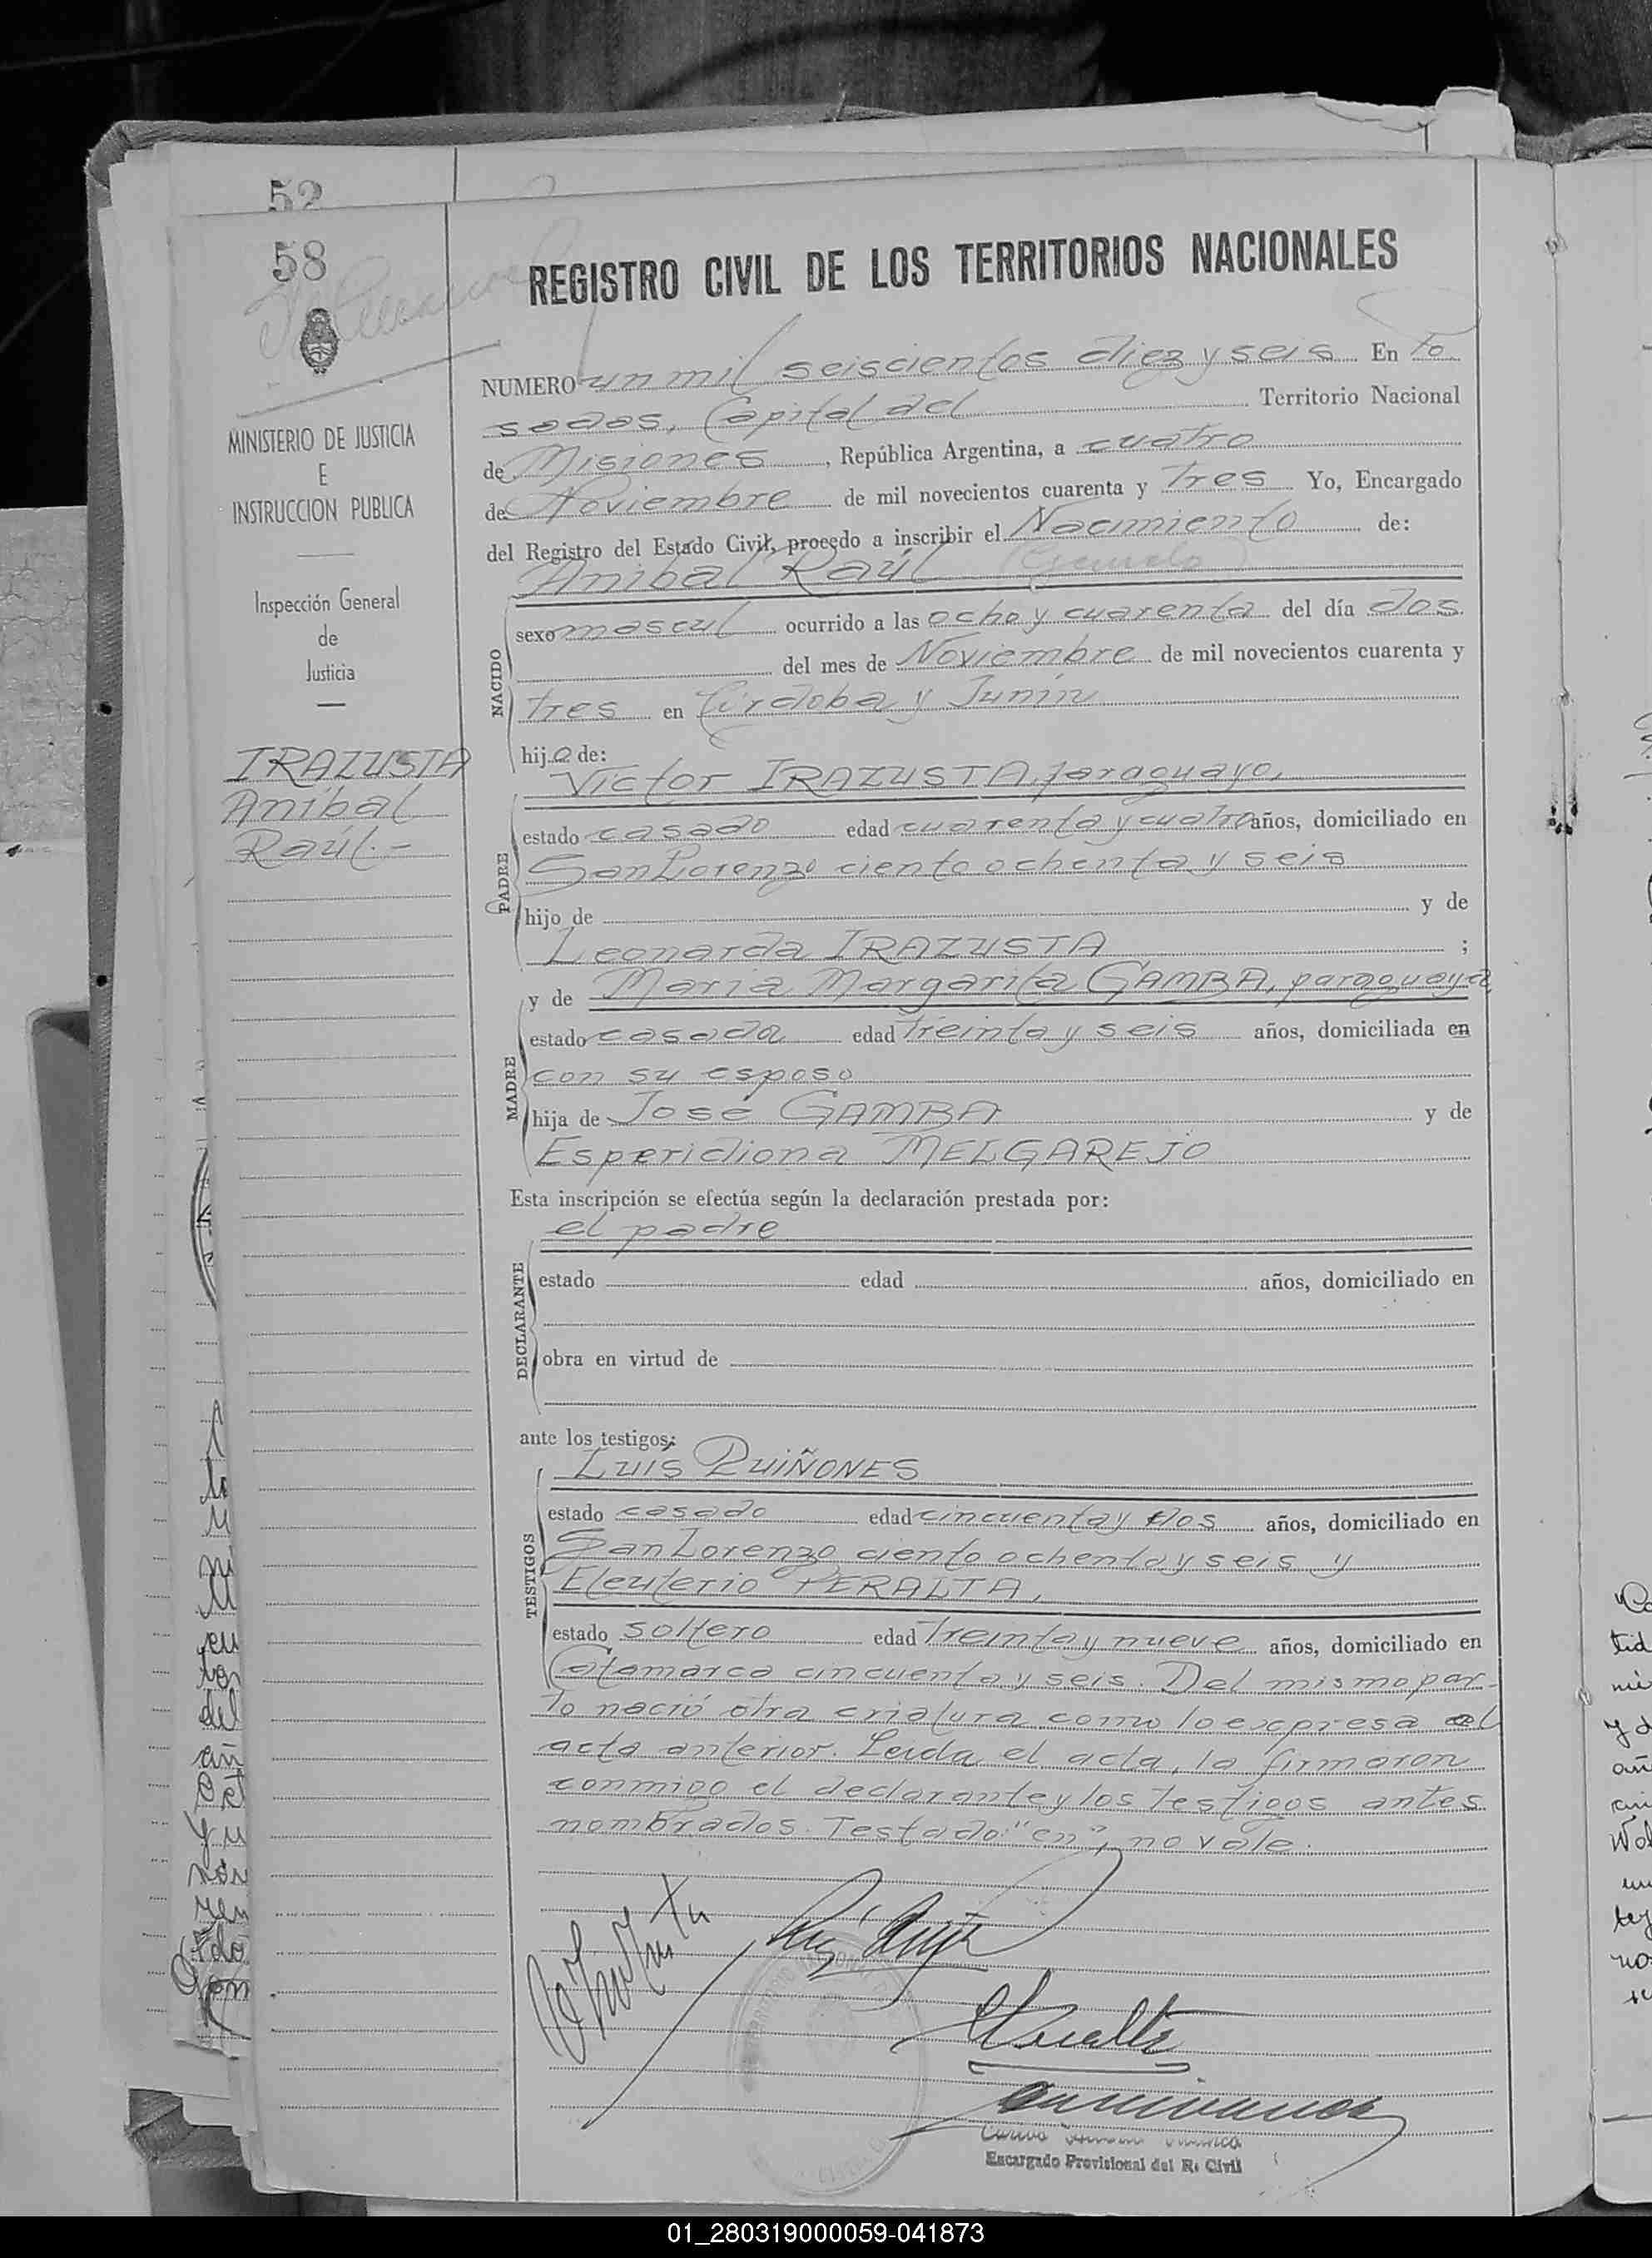 52
58
MINISTERIO DE JUSTICIA
E
INSTRUCCION PUBLICA
Inspección General
de
Justicia
IRAZUSTA
Aníbal
Raúl.-
REGISTRO CIVIL DE LOS TERRITORIOS NACIONALES
NUMERO un mil seiscientos diez y seis En Po
sadas, Capital del Territorio Nacional
de Misiones, República Argentina, a cuatro
de Noviembre de mil novecientos cuarenta y tres Yo, Encargado
del Registro del Estado Civil, procedo a inscribir el Nacimiento de:
Aníbal Raúl (Gemelo)
NACIDO
sexo mascul ocurrido a las ocho y cuarenta del día dos
del mes de Noviembre de mil novecientos cuarenta y
tres en Córdoba y Junín
hijo de:
Víctor IRAZUSTA, paraguayo,
PADRE
estado casado edad cuarenta y cuatro años, domiciliado en
San Lorenzo ciento ochenta y seis
hijo de y de
Leonarda IRAZUSTA ;
y de María Margarita GAMBA, paraguaya,
MADRE
estado casada edad treinta y seis años, domiciliada en
con su esposo
hija de José GAMBA y de
Esperidiona MELGAREJO
Esta inscripción se efectúa según la declaración prestada por:
el padre
DECLARANTE
estado edad años, domiciliado en
obra en virtud de
ante los testigos:
Luís QUIÑONES
TESTIGOS
estado casado edad cincuenta y dos años, domiciliado en
San Lorenzo ciento ochenta y seis y
Eleuterio PERALTA,
estado soltero edad treinta y nueve años, domiciliado en
Catamarca cincuenta y seis. Del mismo par-
to nació otra criatura como lo expresa el
acta anterior. Leida el acta, la firmaron
conmigo el declarante y los testigos antes
nombrados. Testado: "en", no vale.
Encargado Provisional del R. Civil
01_280319000059-041873